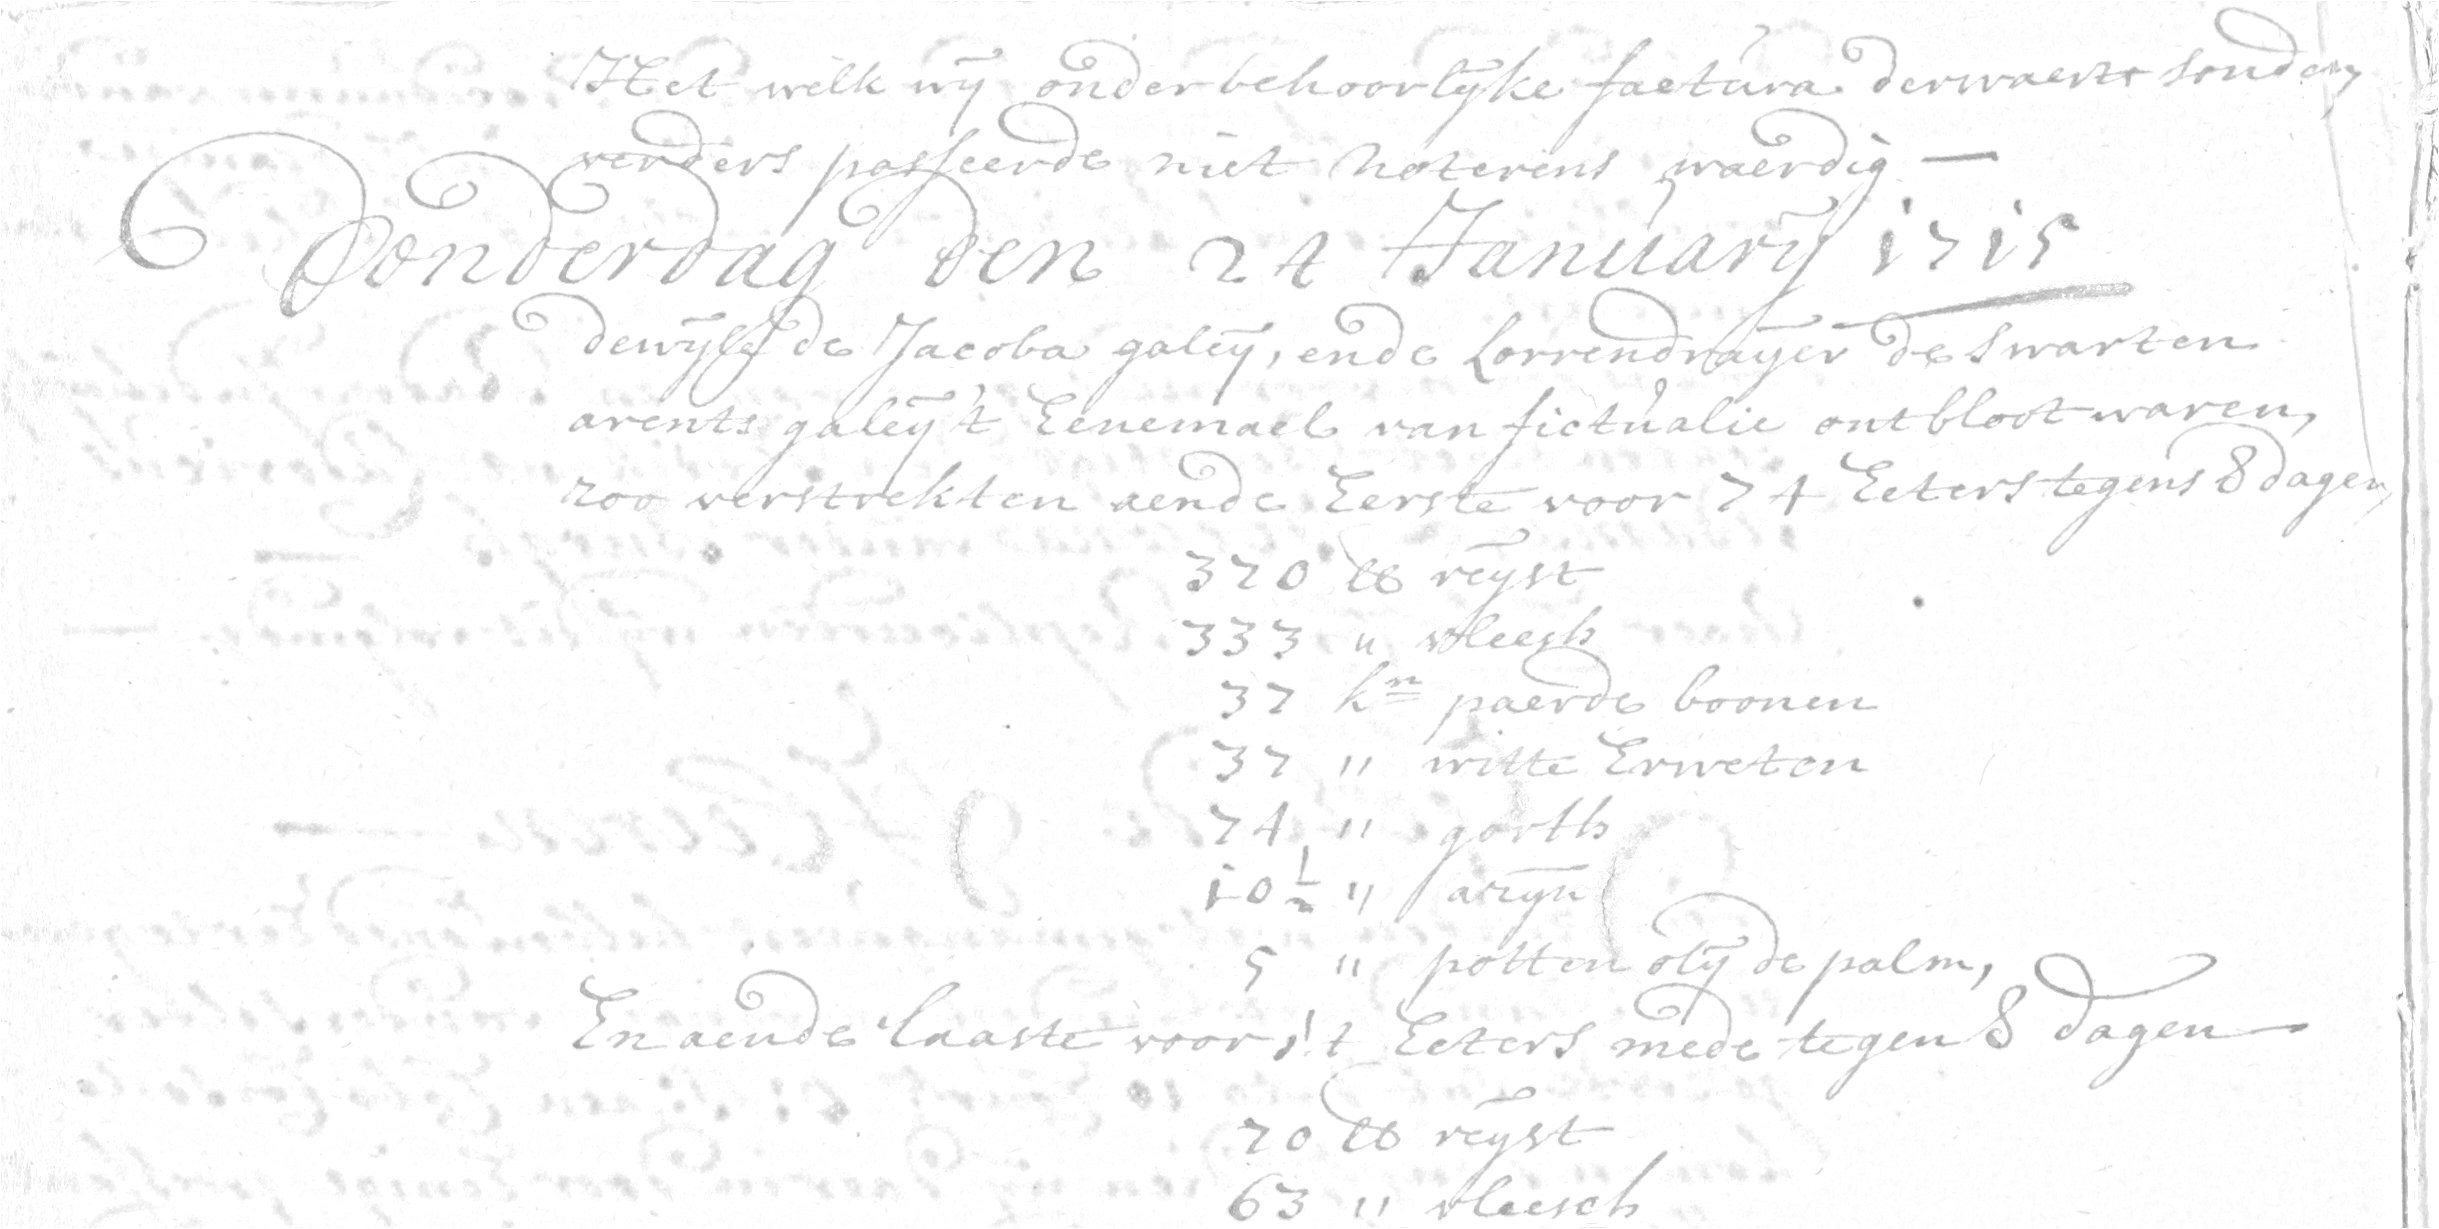 Het welk wij onder behoorlijke factura derwaerts sonden,
verders passeerde niet noterens waerdig —
Donderdag den 24 January 1715
dewijle de Jacoba galeij, ende Lorrendrayer de Swarten
arents galeij 't Eenemael van fictualie ontbloot waren,
zoo verstrekten aende Eerste voor 74 Eeters tegens 8 dagen,
370 lb reyst
333 " vleesh
37 kn paerde boonen
37 " witte Erweten
74 " gorth
10 1/2 " azyn
5 " potten olij de palm,
En aende laaste voor 14 Eeters mede tegen 8 dagen
70 lb reyst
63 " vleesch